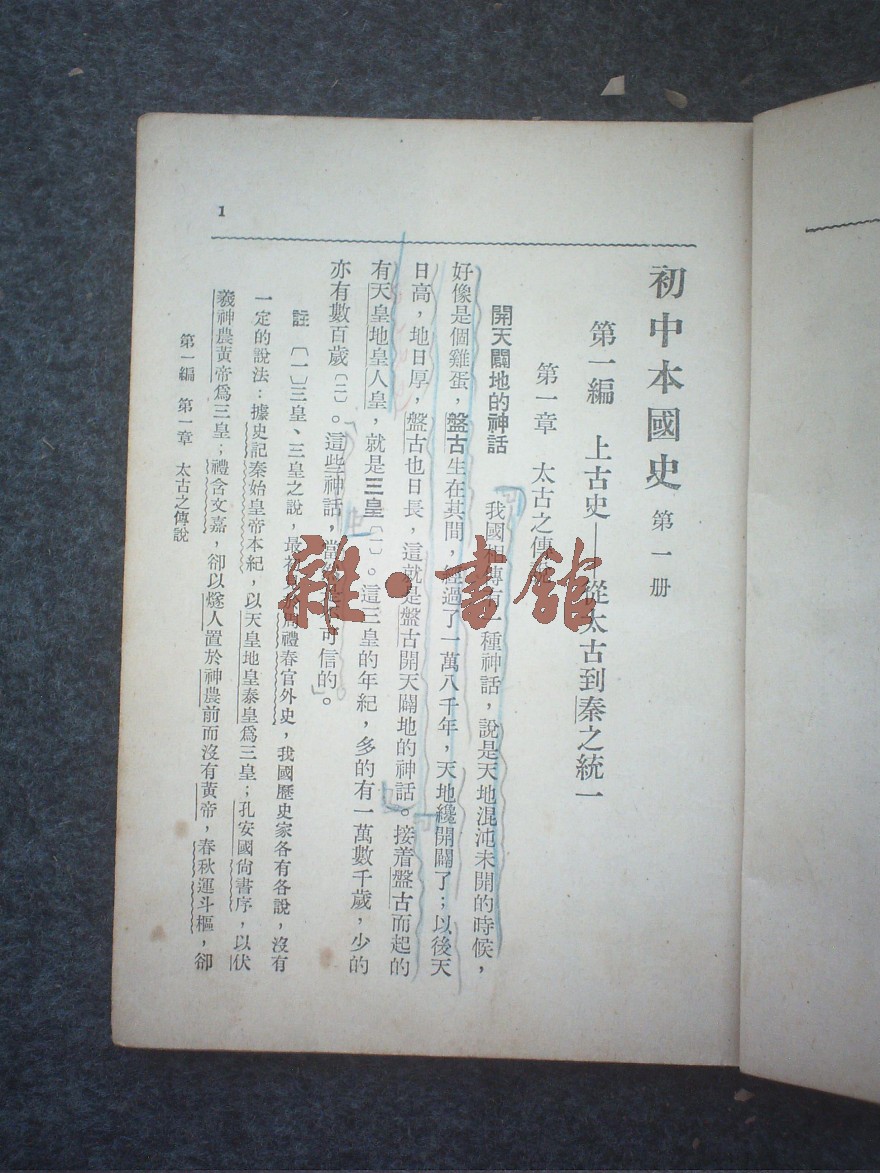 1
初中本國史 第一册
第一編 上古史——從太古到秦之統一
第一章 太古之傳
開天闢地的神話 我國 種神話，說是天地混沌未開的時候，
好像是個雞蛋，盤古生在其間，經過了一萬八千年，天地纔開闢了；以後天
日高，地日厚，盤古也日長，這就是盤古開天闢地的神話。接着盤古而起的
有天皇地皇人皇，就是三皇〔一〕。這三皇的年紀，多的有一萬數千歲，少的
亦有數百歲〔二〕。這些神話， 可信的。
註 〔一〕三皇、三皇之說，最 周禮春官外史，我國歷史家各有各說，沒有
一定的說法：據史記秦始皇帝本紀，以天皇地皇泰皇爲三皇；孔安國尙書序，以伏
羲神農黃帝爲三皇；禮含文嘉，卻以燧人置於神農前而沒有黃帝，春秋運斗樞，卻
第一編 第一章 太古之傳說
雜·書館